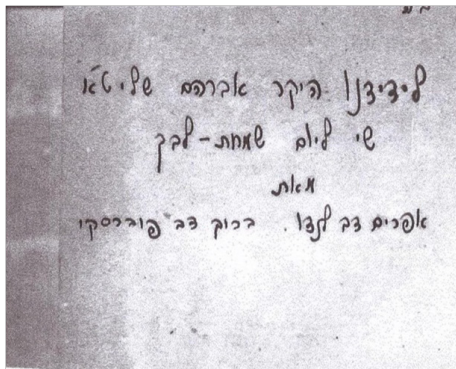 לידידנו היקר אברהם שליט"א
שי ליום שמחת-לבך
מאת
אפרים דב לנדו. ברוך דב פוברסקי